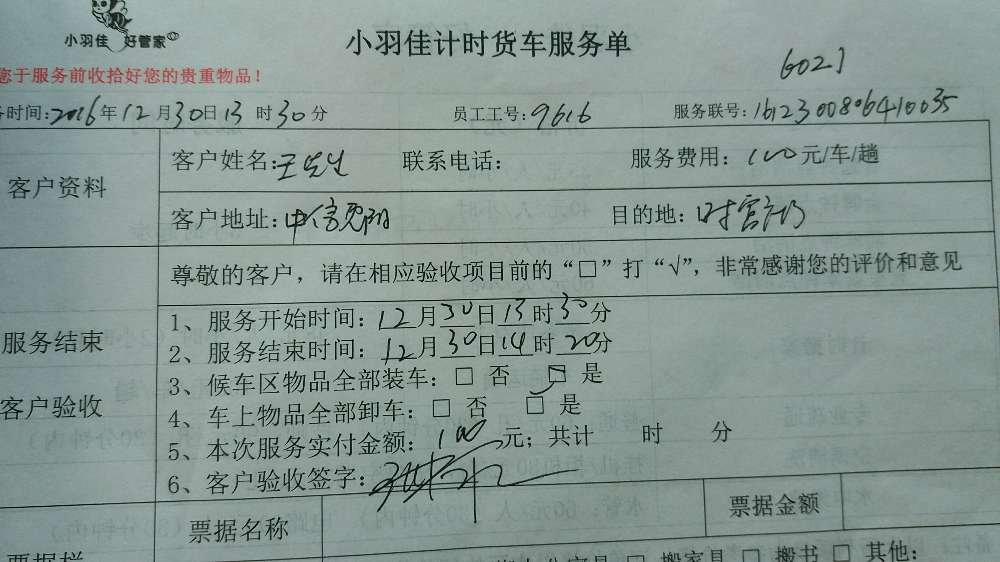 小羽佳 好管家
小羽佳计时货车服务单
您于服务前收拾好您的贵重物品！
务时间:2016年12月30日13时30分 员工工号:9616 服务联号:1612300806410035
客户资料
客户姓名:王先生 联系电话: 服务费用:100元/车/趟
客户地址:中信惠阳 目的地:
尊敬的客户，请在相应验收项目前的“□”打“√”，非常感谢您的评价和意见
服务结束
客户验收
1、服务开始时间:12月30日13时30分
2、服务结束时间:12月30日14时20分
3、候车区物品全部装车:□ 否 □ 是
4、车上物品全部卸车:□ 否 □ 是
5、本次服务实付金额:100元；共计 时 分
6、客户验收签字:
票据栏
票据名称 票据金额
□ 搬家具 □ 搬书 □ 其他: